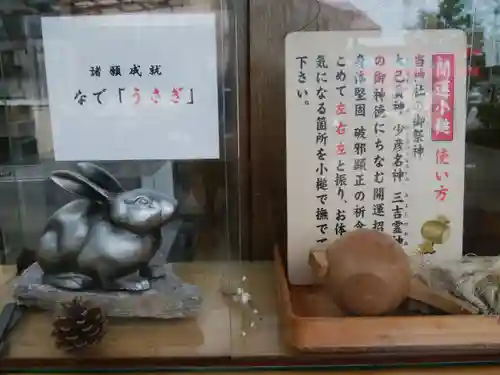 諸願成就
なで「うさぎ」
開運小槌 使い方
当神社の御祭神
大己貴神 少彦名神 三吉霊神
の御神徳にちなむ開運招
身体堅固 破邪顕正の祈念
こめて左右左と振り、お体
気になる箇所を小槌で撫でて
下さい。